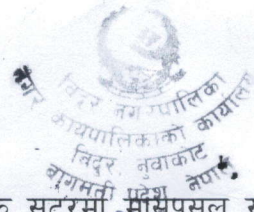 विदुर नगरपालिका
नगर कार्यपालिकाको कार्यालय
विदुर, नुवाकोट
बागमती प्रदेश नेपाल